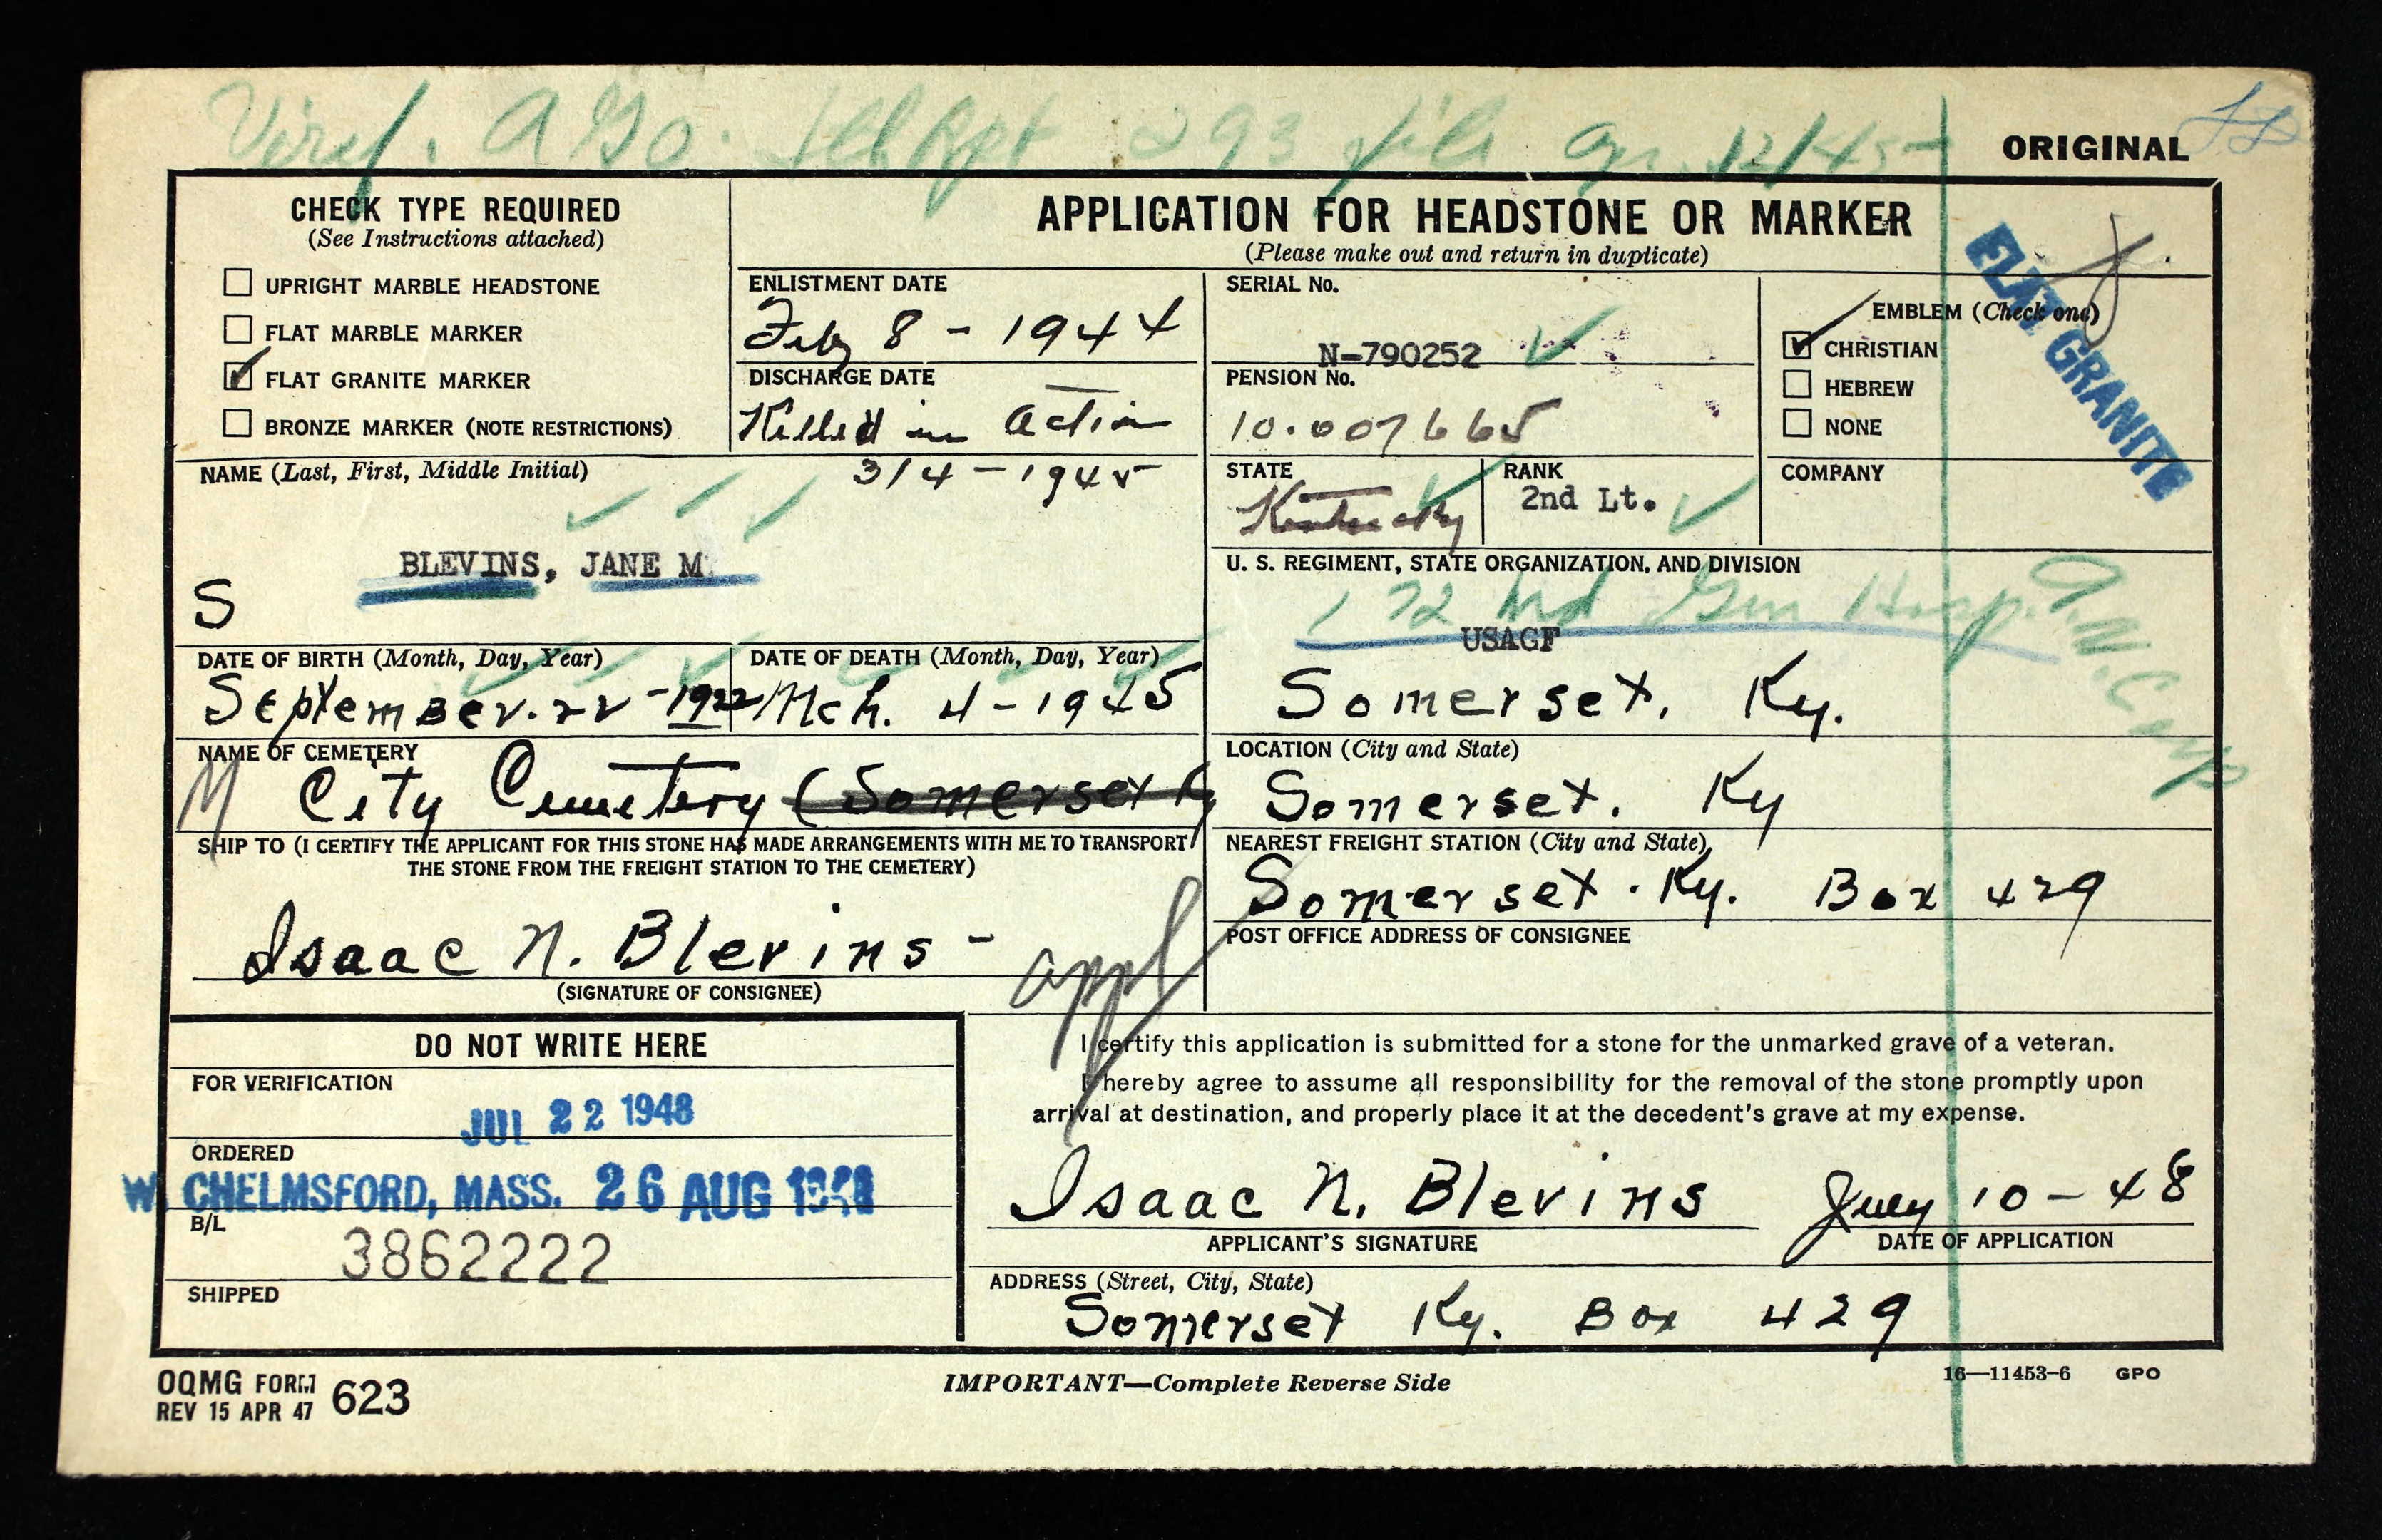 Verif. AGO. 293 file 12/45
ORIGINAL
CHECK TYPE REQUIRED
(See Instructions attached)
UPRIGHT MARBLE HEADSTONE
FLAT MARBLE MARKER
FLAT GRANITE MARKER
BRONZE MARKER (NOTE RESTRICTIONS)
APPLICATION FOR HEADSTONE OR MARKER
(Please make out and return in duplicate)
ENLISTMENT DATE
Feby 8 - 1944
DISCHARGE DATE
Killed in Action
3/4 - 1945
SERIAL No.
N-790252
PENSION No.
10.007665
EMBLEM (Check one)
CHRISTIAN
HEBREW
NONE
FLAT GRANITE
NAME (Last, First, Middle Initial)
BLEVINS, JANE M
S
STATE
Kentucky
RANK
2nd Lt.
COMPANY
U. S. REGIMENT, STATE ORGANIZATION, AND DIVISION
172 nd Gen Hosp. A.N.Corp
USAGF
Somerset, Ky.
DATE OF BIRTH (Month, Day, Year)
September. 22 - 1922
DATE OF DEATH (Month, Day, Year)
Mch. 4 - 1945
NAME OF CEMETERY
M City Cemetery (Somerset Ky
LOCATION (City and State)
Somerset. Ky
SHIP TO (I CERTIFY THE APPLICANT FOR THIS STONE HAS MADE ARRANGEMENTS WITH ME TO TRANSPORT
THE STONE FROM THE FREIGHT STATION TO THE CEMETERY)
NEAREST FREIGHT STATION (City and State)
Somerset. Ky. Box 429
Isaac N. Blevins -
(SIGNATURE OF CONSIGNEE)
appl
POST OFFICE ADDRESS OF CONSIGNEE
DO NOT WRITE HERE
FOR VERIFICATION
JUL 22 1948
ORDERED
W. CHELMSFORD, MASS. 26 AUG 1948
B/L
3862222
SHIPPED
I certify this application is submitted for a stone for the unmarked grave of a veteran.
I hereby agree to assume all responsibility for the removal of the stone promptly upon
arrival at destination, and properly place it at the decedent's grave at my expense.
Isaac N. Blevins July 10 - 48
APPLICANT'S SIGNATURE DATE OF APPLICATION
ADDRESS (Street, City, State)
Somerset Ky. Box 429
OQMG FORM 623
REV 15 APR 47
IMPORTANT—Complete Reverse Side
16—11453-6 GPO